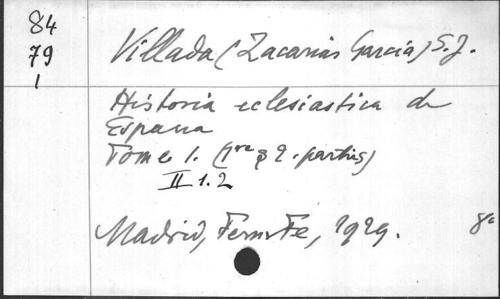 84
79
1
Villada (Zacarias Garcia) S.J.
Historia eclesiastica de
España
Tome 1. (1re & 2. parties)
II 1.2
Madrid, Fern. Fe, 1929.
8°